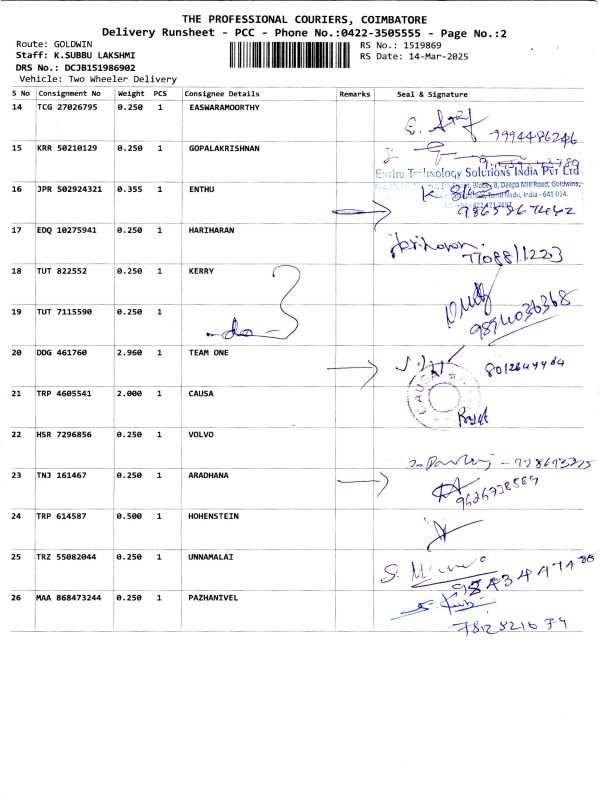 THE PROFESSIONAL COURIERS, COIMBATORE
Delivery Runsheet - PCC - Phone No.:0422-3505555 - Page No.:2
Route: GOLDWIN
RS No.: 1519869
Staff: K.SUBBU LAKSHMI
RS Date: 14-Mar-2025
DRS No.: DCJB151986902
Vehicle: Two Wheeler Delivery
S No Consignment No Weight PCS Consignee Details Remarks Seal & Signature
14 TCG 27026795 0.250 1 EASWARAMOORTHY
9994486246
15 KRR 50210129 0.250 1 GOPALAKRISHNAN
Enthu Technology Solutions India Pvt Ltd
B, Deepa Mill Road, Goldwins,
Tamil Nadu, India - 641 014.
16 JPR 502924321 0.355 1 ENTHU
9865867442
17 EDQ 10275941 0.250 1 HARIHARAN
Hariharan
7708811223
18 TUT 822552 0.250 1 KERRY
19 TUT 7115590 0.250 1
-do-
9894036368
20 DDG 461760 2.960 1 TEAM ONE
8012644464
21 TRP 4605541 2.000 1 CAUSA
CAUSA
22 HSR 7296856 0.250 1 VOLVO
23 TNJ 161467 0.250 1 ARADHANA
9626738589
24 TRP 614587 0.500 1 HOHENSTEIN
25 TRZ 55082044 0.250 1 UNNAMALAI
26 MAA 868473244 0.250 1 PAZHANIVEL